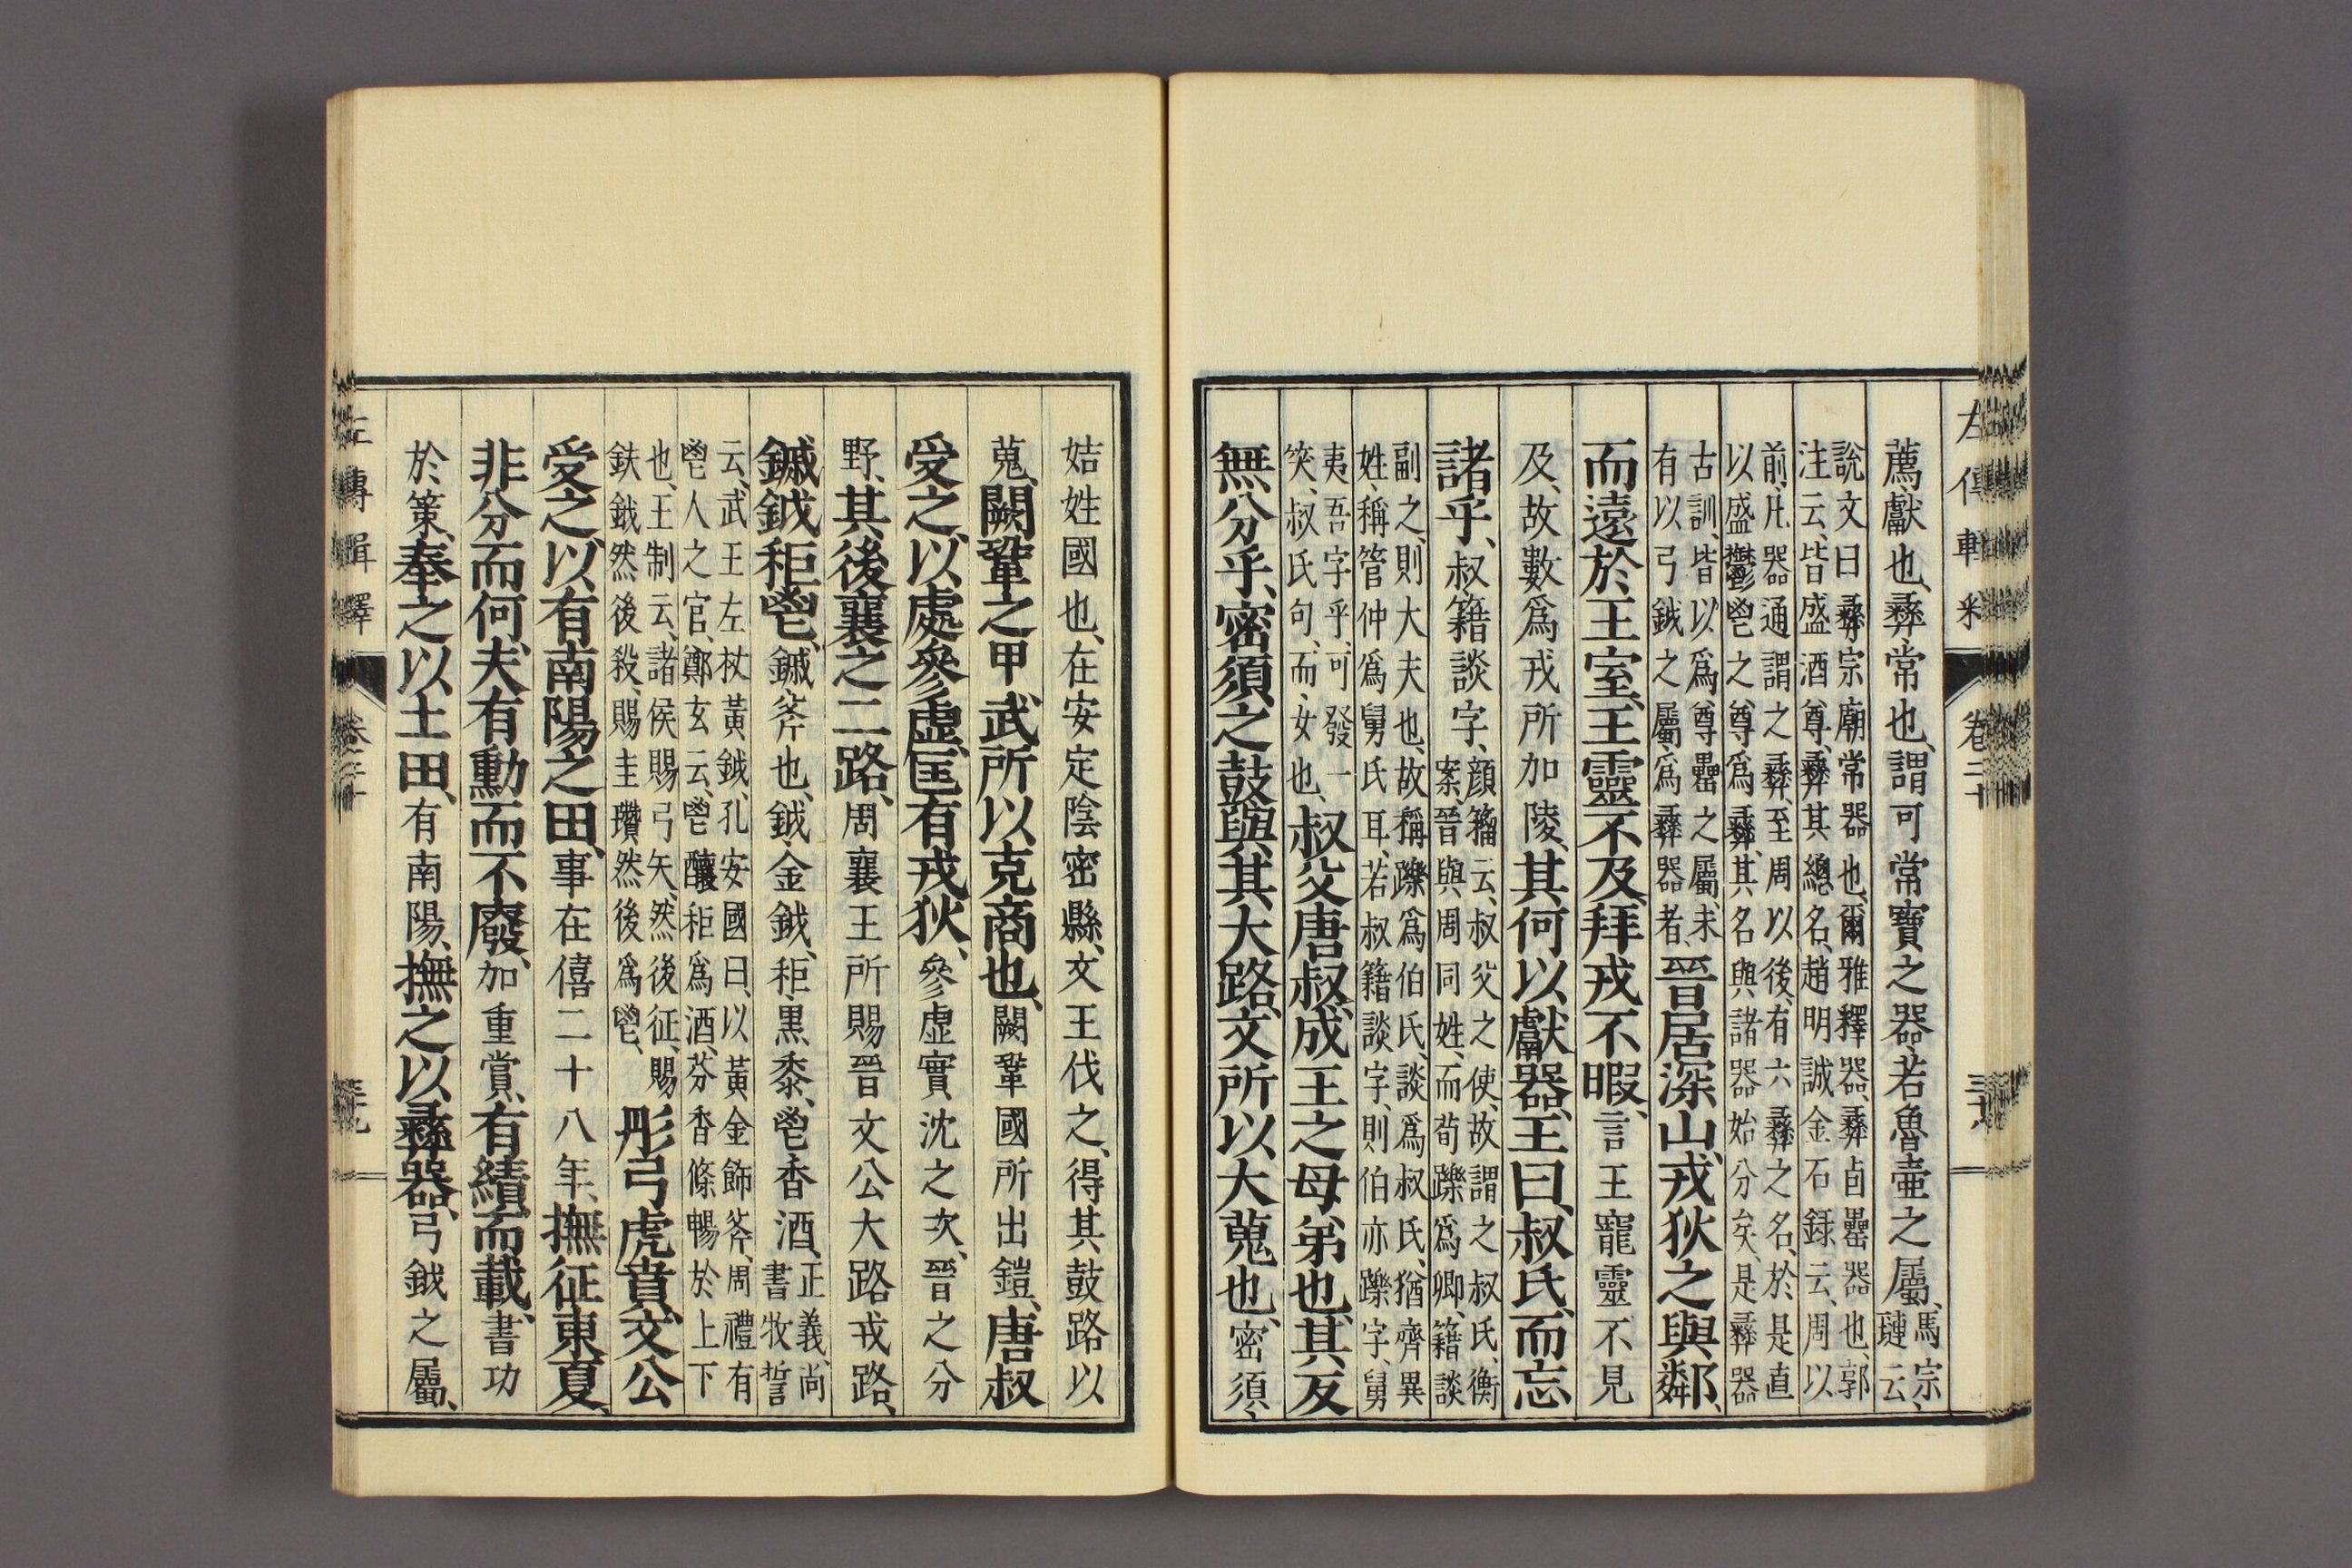 薦、獻也、彝、常也、謂可常寶之器、若魯壺之屬、馬宗璉云、
說文曰、彝、宗廟常器也、爾雅釋器、彝卣罍器也、郭
注云、皆盛酒尊、彝其總名、趙明誠金石錄云、周以
前、凡器通謂之彝、至周以後、有六彝之名、於是直
以盛鬱鬯之尊爲彝、其名與諸器始分矣、是彝器
古訓、皆以爲尊罍之屬、未
有以弓鉞之屬、爲彝器者、晉居深山、戎狄之與鄰、
而遠於王室、王靈不及、拜戎不暇、言王寵靈不見
及、故數爲戎所加陵、其何以獻器、王曰、叔氏、而忘
諸乎、叔、籍談字、顏籀云、叔父之使、故謂之叔氏、衡
案、晉與周同姓、而荀躒爲卿、籍談
副之、則大夫也、故稱躒爲伯氏、談爲叔氏、猶齊異
姓、稱管仲爲舅氏耳、若叔籍談字、則伯亦躒字、舅
夷吾字乎、可發一
笑、叔氏句、而、女也、叔父唐叔、成王之母弟也、其反
無分乎、密須之鼓、與其大路、文所以大蒐也、密須、
左傳輯釋 卷二十
姞姓國也、在安定陰密縣、文王伐之、得其鼓路以
蒐、闕鞏之甲、武所以克商也、闕鞏國所出鎧、唐叔
受之、以處參虛、匡有戎狄、參虛、實沈之次、晉之分
野、其後襄之二路、周襄王所賜晉文公大路戎路、
鏚鉞秬鬯、鏚、斧也、鉞、金鉞、秬、黑黍、鬯、香酒、正義、尚書牧誓
云、武王左杖黃鉞、孔安國曰、以黃金飾斧、周禮有
鬯人之官、鄭玄云、鬯釀秬爲酒、芬香條暢於上下
也、王制云、諸侯賜弓矢、然後征、賜
鈇鉞然後殺、賜圭瓚然後爲鬯、彤弓虎賁、文公
受之、以有南陽之田、事在僖二十八年、撫征東夏、
非分而何、夫有勳而不廢、加重賞、有績而載、書功
於策、奉之以土田、有南陽、撫之以彝器、弓鉞之屬、
左傳輯釋 卷二十